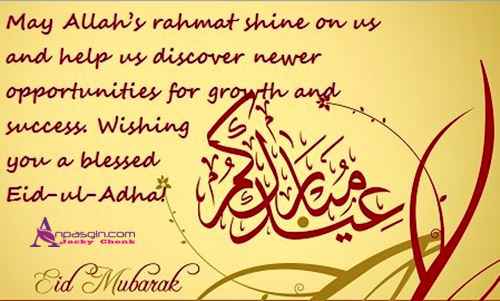 May Allah's rahmat shine on us
and help us discover newer
opportunities for growth and
success. Wishing
you a blessed
Eid-ul-Adha!
عيدكم مبارك
Anpasgin.com
Jacky Chonk
Eid Mubarak